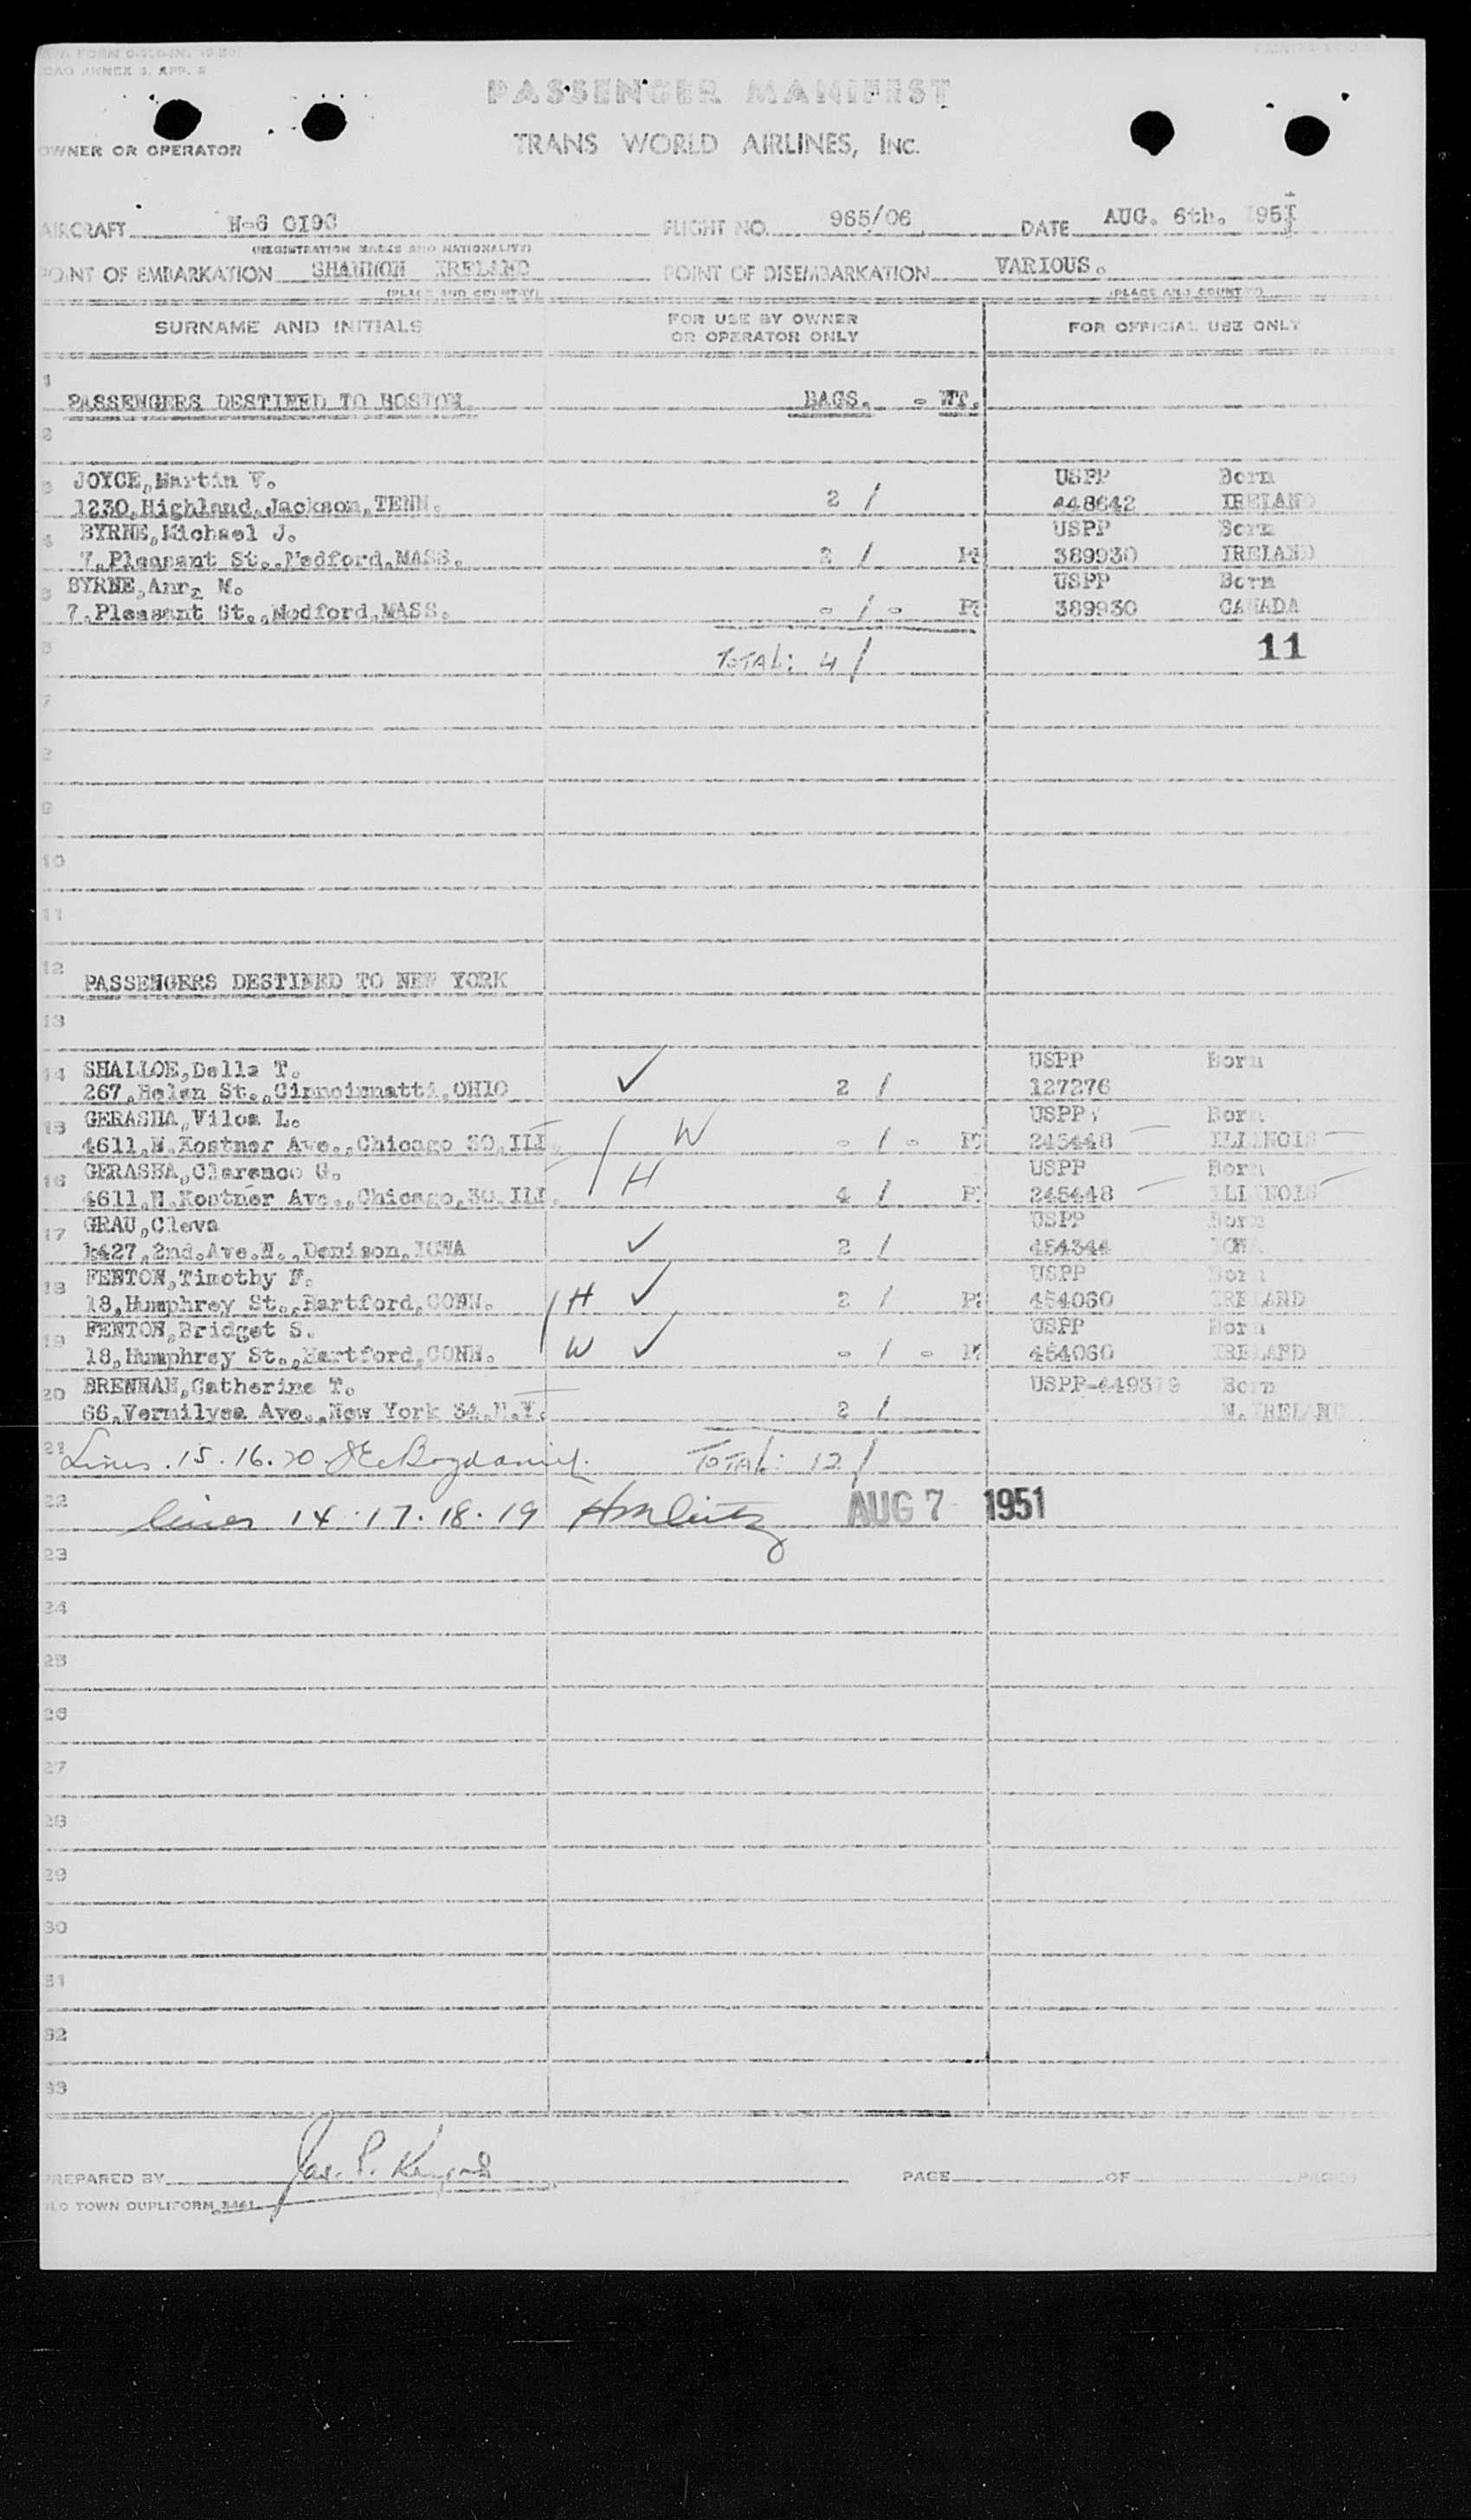 ICAO ANNEX 9, APP. 2
PASSENGER MANIFEST
OWNER OR OPERATOR
TRANS WORLD AIRLINES, INC.
AIRCRAFT FLIGHT NO. 965/06 DATE AUG. 6th. 1951
(REGISTRATION MARKS AND NATIONALITY)
POINT OF EMBARKATION SHANNON IRELAND POINT OF DISEMBARKATION VARIOUS.
(PLACE AND COUNTRY) (PLACE AND COUNTRY)
SURNAME AND INITIALS FOR USE BY OWNER OR OPERATOR ONLY FOR OFFICIAL USE ONLY
1 PASSENGERS DESTINED TO BOSTON. BAGS. - WT.
2
3 JOYCE,Martin V. USPP Born
1230,Highland,Jackson,TENN. 2 / 448642 IRELAND
4 BYRNE,Michael J. USPP Born
7,Pleasant St.,Medford,MASS. 2 / 389930 IRELAND
5 BYRNE,Ann M. USPP Born
7,Pleasant St.,Medford,MASS. - / - 389930 CANADA
6 TOTAL: 4 / 11
7
8
9
10
11
12 PASSENGERS DESTINED TO NEW YORK
13
14 SHALLOE,Della T. ✓ USPP Born
267,Helen St.,Cinncinnatti,OHIO 2 / 127276
15 GERASHA, L. W USPP Born
4611,N.Kostner Ave.,Chicago 30,ILL - / - 245448 ILLINOIS
16 GERASHA,Clarence G. H USPP Born
4611,N.Kostner Ave.,Chicago,30,ILL. 4 / 245448 ILLINOIS
17 GRAU,Cleva ✓ USPP Born
1427,2nd.Ave.N.,Denison,IOWA 2 / 454344 IOWA
18 FENTON,Timothy F. H ✓ USPP Born
18,Humphrey St.,Hartford,CONN. 2 / 454060 IRELAND
19 FENTON,Bridget S. W ✓ USPP Born
18,Humphrey St.,Hartford,CONN. - / - 454060 IRELAND
20 BRENNAN,Catherine T. USPP-449379 Born
66,Vermilyea Ave.,New York 34,N.Y. 2 / N.IRELAND
21 Lines . 15 . 16 . 20 TOTAL: 12 /
22 lines 14 . 17 . 18 . 19 AUG 7 1951
23
24
25
26
27
28
29
30
31
32
33
PREPARED BY Jas. P. PAGE OF PAGES
OLD TOWN DUPLIFORM